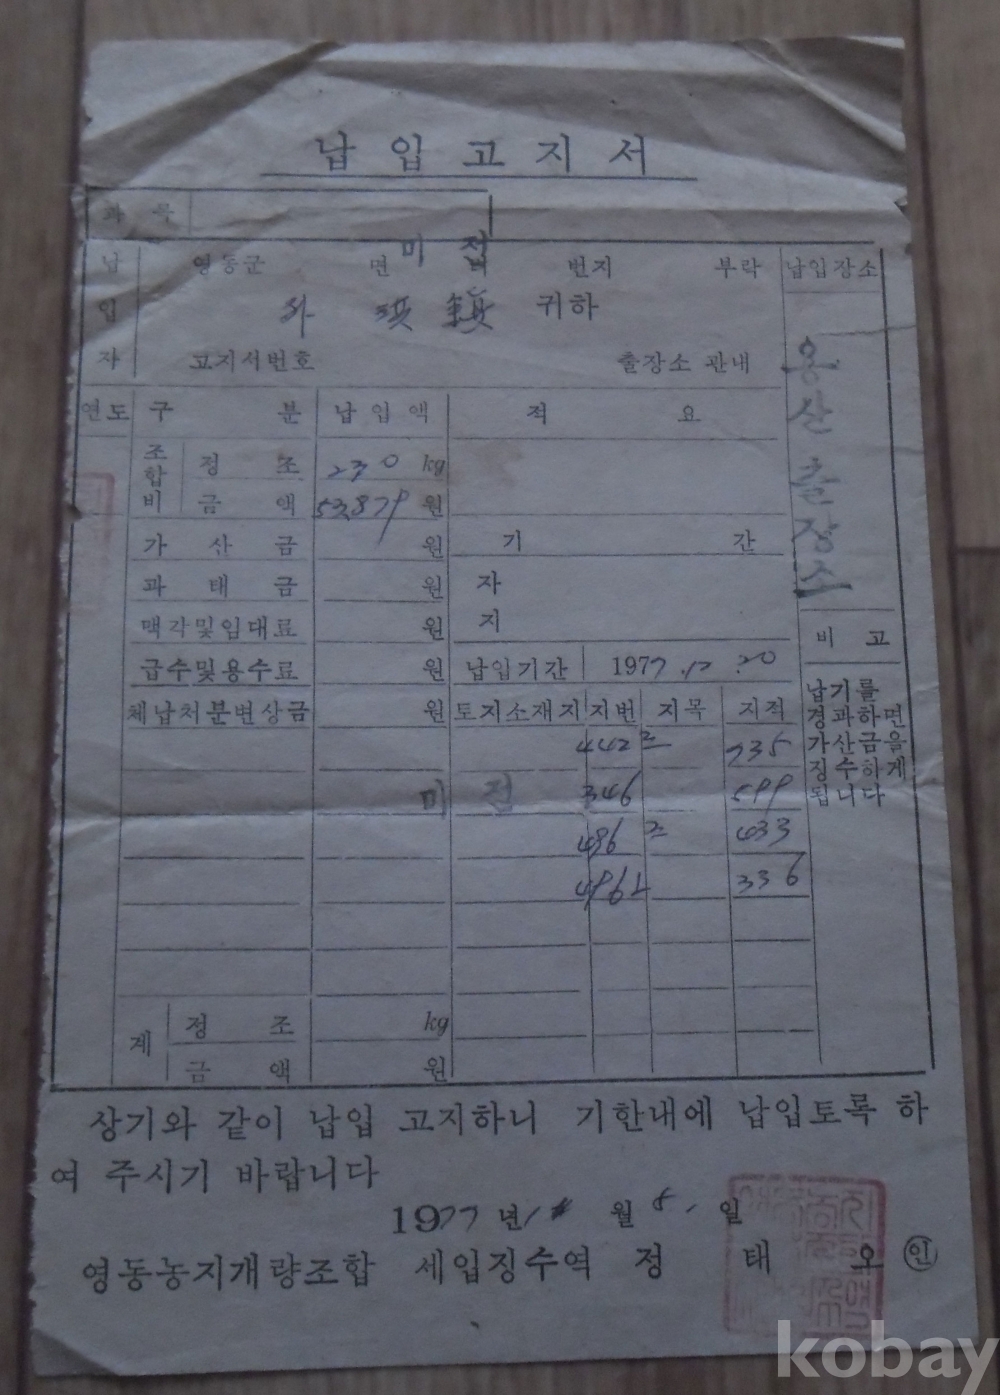 납입고지서
과 목
미 전
납입자 영동군 면 리 번지 부락 납입장소
鎭 귀하
고지서번호 출장소 관내
용산출장소
연도 구 분 납입액 적 요
조합비 정 조 230 kg
금 액 53,879 원
가 산 금 원 기 간
과 태 금 원 자
매각및임대료 원 지
비 고
급수및용수료 원 납입기간 1977.12.20
체납처분변상금 원 토지소재지 지번 지목 지적
납기를
경과하면
가산금을
징수하게
됩니다
442 735
미 전 346 599
496 433
496 336
계 정 조 kg
금 액 원
상기와 같이 납입 고지하니 기한내에 납입토록 하
여 주시기 바랍니다
1977년 월 8. 일
영동농지개량조합 세입징수역 정 태 오 ㊞
kobay